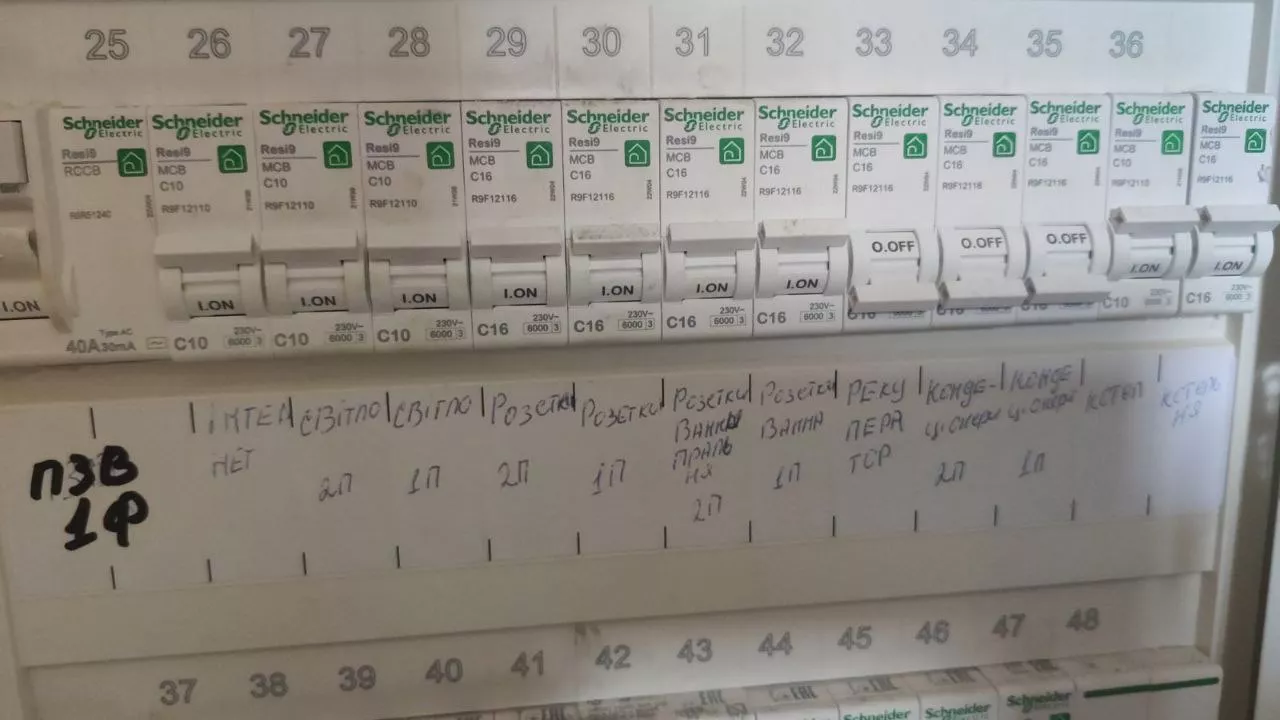 25 26 27 28 29 30 31 32 33 34 35 36
Schneider Electric Schneider Electric Schneider Electric Schneider Electric Schneider Electric Schneider Electric Schneider Electric Schneider Electric Schneider Electric Schneider Electric Schneider Electric Schneider Electric Schneider Electric
Resi9 Resi9 Resi9 Resi9 Resi9 Resi9 Resi9 Resi9 Resi9 Resi9 Resi9 Resi9 Resi9
RCCB MCB MCB MCB MCB MCB MCB MCB MCB MCB MCB MCB MCB
C10 C10 C10 C16 C16 C16 C16 C16 C16 C16 C10 C16
R9F12110 R9F12110 R9F12110 R9F12116 R9F12116 R9F12116 R9F12116 R9F12116 R9F12116 R9F12116 R9F12110 R9F12116
O.OFF O.OFF O.OFF
I.ON I.ON I.ON I.ON I.ON I.ON I.ON I.ON I.ON I.ON
Type AC
40A 30mA
C10 C10 C10 C16 C16 C16 C16 C10 C16
230V~ 230V~ 230V~ 230V~ 230V~ 230V~ 230V~
6000 3 6000 3 6000 3 6000 3 6000 3 6000 3 6000 3
ПЗВ
1Ф
ІНТЕР
НЕТ
СВІТЛО
2П
СВІТЛО
1П
РОЗЕТКИ
2П
РОЗЕТКИ
1П
РОЗЕТКИ
ВАННА
ПРАЛЬ
НЯ
2П
РОЗЕТКИ
ВАННА
1П
РЕКУ
ПЕРА
ТОР
КОНДЕ-
2П
КОНДЕ
1П
37 38 39 40 41 42 43 44 45 46 47 48
Schneider Electric Schneider Electric Schneider Electric